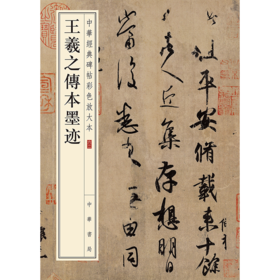 王羲之傳本墨迹
中華經典碑帖彩色放大本
中華書局
平安脩載來十餘
諸人近集存想明日
當復悉來無由同